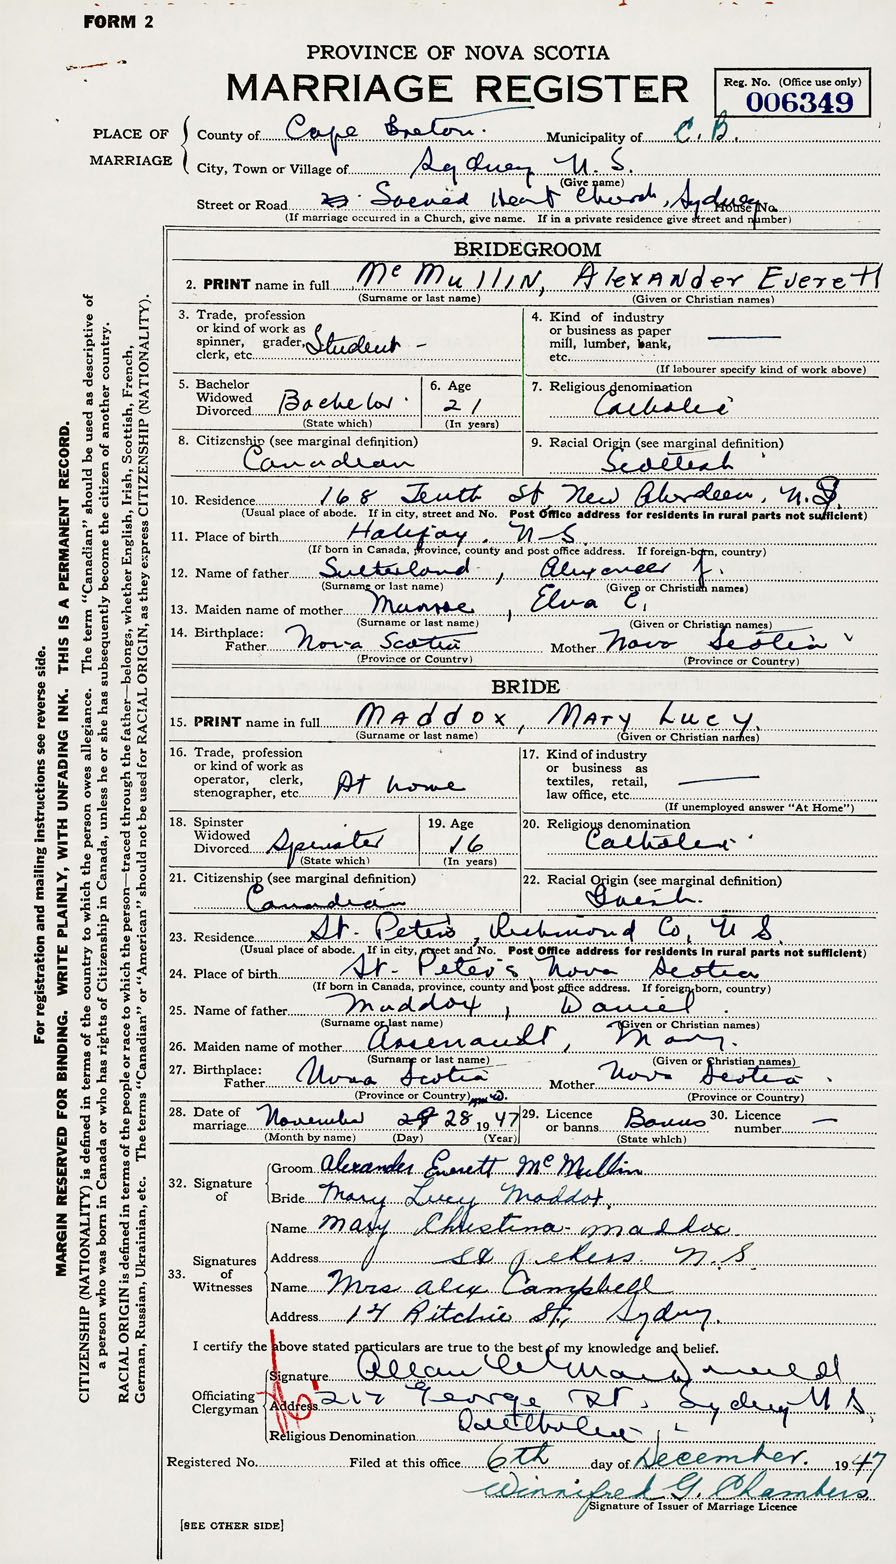 FORM 2
PROVINCE OF NOVA SCOTIA
MARRIAGE REGISTER
Reg. No. (Office use only)
006349
PLACE OF MARRIAGE
County of Cape Breton. Municipality of C. B.
City, Town or Village of Sydney N. S.
(Give name)
Street or Road Sacred Heart Church, Sydney House No.
(If marriage occurred in a Church, give name. If in a private residence give street and number)
BRIDEGROOM
2. PRINT name in full McMullin, Alexander Everett
(Surname or last name) (Given or Christian names)
3. Trade, profession or kind of work as spinner, grader, clerk, etc. Student -
4. Kind of industry or business as paper mill, lumber, bank, etc. —
(If labourer specify kind of work above)
5. Bachelor Widowed Divorced Bachelor.
(State which)
6. Age 21
(In years)
7. Religious denomination
Catholic
8. Citizenship (see marginal definition)
Canadian
9. Racial Origin (see marginal definition)
Scottish
10. Residence 168 Tenth St, New Aberdeen, N.S.
(Usual place of abode. If in city, street and No. Post Office address for residents in rural parts not sufficient)
11. Place of birth Halifax. N-S.
(If born in Canada, province, county and post office address. If foreign-born, country)
12. Name of father Sutherland, Alexander J.
(Surname or last name) (Given or Christian names)
13. Maiden name of mother Munroe, Elva C,
(Surname or last name) (Given or Christian names)
14. Birthplace:
Father Nova Scotia Mother Nova Scotia
(Province or Country) (Province or Country)
BRIDE
15. PRINT name in full Maddox, Mary Lucy.
(Surname or last name) (Given or Christian names)
16. Trade, profession or kind of work as operator, clerk, stenographer, etc. At home
17. Kind of industry or business as textiles, retail, law office, etc. —
(If unemployed answer "At Home")
18. Spinster Widowed Divorced Spinster
(State which)
19. Age 16
(In years)
20. Religious denomination
Catholic
21. Citizenship (see marginal definition)
Canadian
22. Racial Origin (see marginal definition)
23. Residence St. Peters, Richmond Co, N S.
(Usual place of abode. If in city, street and No. Post Office address for residents in rural parts not sufficient)
24. Place of birth St- Peter's Nova Scotia
(If born in Canada, province, county and post office address. If foreign born, country)
25. Name of father Maddox, Daniel.
(Surname or last name) (Given or Christian names)
26. Maiden name of mother Arsenault, Mary.
(Surname or last name) (Given or Christian names)
27. Birthplace:
Father Nova Scotia Mother Nova Scotia
(Province or Country) (Province or Country)
28. Date of marriage November 28 1947
(Month by name) (Day) (Year)
29. Licence or banns Banns
(State which)
30. Licence number —
32. Signature of
Groom Alexander Everett McMullin
Bride Mary Lucy Maddox.
33. Signatures of Witnesses
Name Mary Christina Maddox.
Address St peters. N.S.
Name Mrs Alex Campbell
Address 14 Ritchie St, Sydney.
I certify the above stated particulars are true to the best of my knowledge and belief.
Officiating Clergyman
Signature Allan
Address 217 George St, Sydney N S,
Religious Denomination Catholic
Registered No. Filed at this office 6th day of December. 1947
Winnifred G. Chambers
Signature of Issuer of Marriage Licence
[SEE OTHER SIDE]
For registration and mailing instructions see reverse side.
MARGIN RESERVED FOR BINDING. WRITE PLAINLY, WITH UNFADING INK. THIS IS A PERMANENT RECORD.
CITIZENSHIP (NATIONALITY) is defined in terms of the country to which the person owes allegiance. The term "Canadian" should be used as descriptive of
a person who was born in Canada or who has rights of Citizenship in Canada, unless he or she has subsequently become the citizen of another country.
RACIAL ORIGIN is defined in terms of the people or race to which the person—traced through the father—belongs, whether English, Irish, Scottish, French,
German, Russian, Ukrainian, etc. The terms "Canadian" or "American" should not be used for RACIAL ORIGIN, as they express CITIZENSHIP (NATIONALITY).